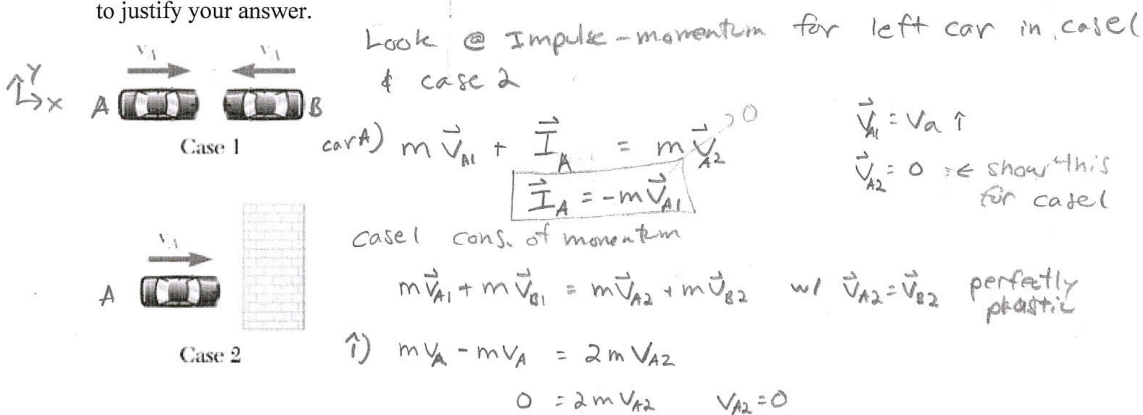 to justify your answer.
Look @ Impulse-momentum for left car in case 1
& case 2
v_A v_A
Y
X
A B
Case 1
car A) m V⃗_A1 + I⃗_A = m V⃗_A2 → 0
V⃗_A1 = Va î
I⃗_A = -m V⃗_A1
V⃗_A2 = 0 :← show this
for case 1
case 1 cons. of momentum
v_A
A
m V⃗_A1 + m V⃗_B1 = m V⃗_A2 + m V⃗_B2 w/ V⃗_A2 = V⃗_B2 perfectly
plastic
Case 2
î) m V_A - m V_A = 2 m V_A2
0 = 2 m V_A2 V_A2 = 0